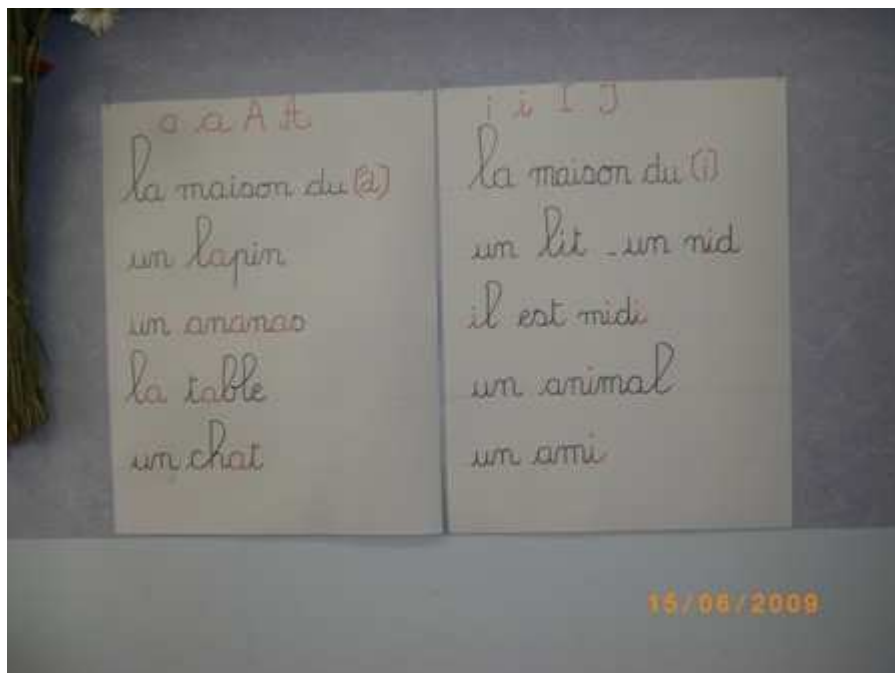 a a A A
la maison du [a]
un lapin
un ananas
la table
un chat
i i I I
la maison du [i]
un lit - un nid
il est midi
un animal
un ami
15/06/2009